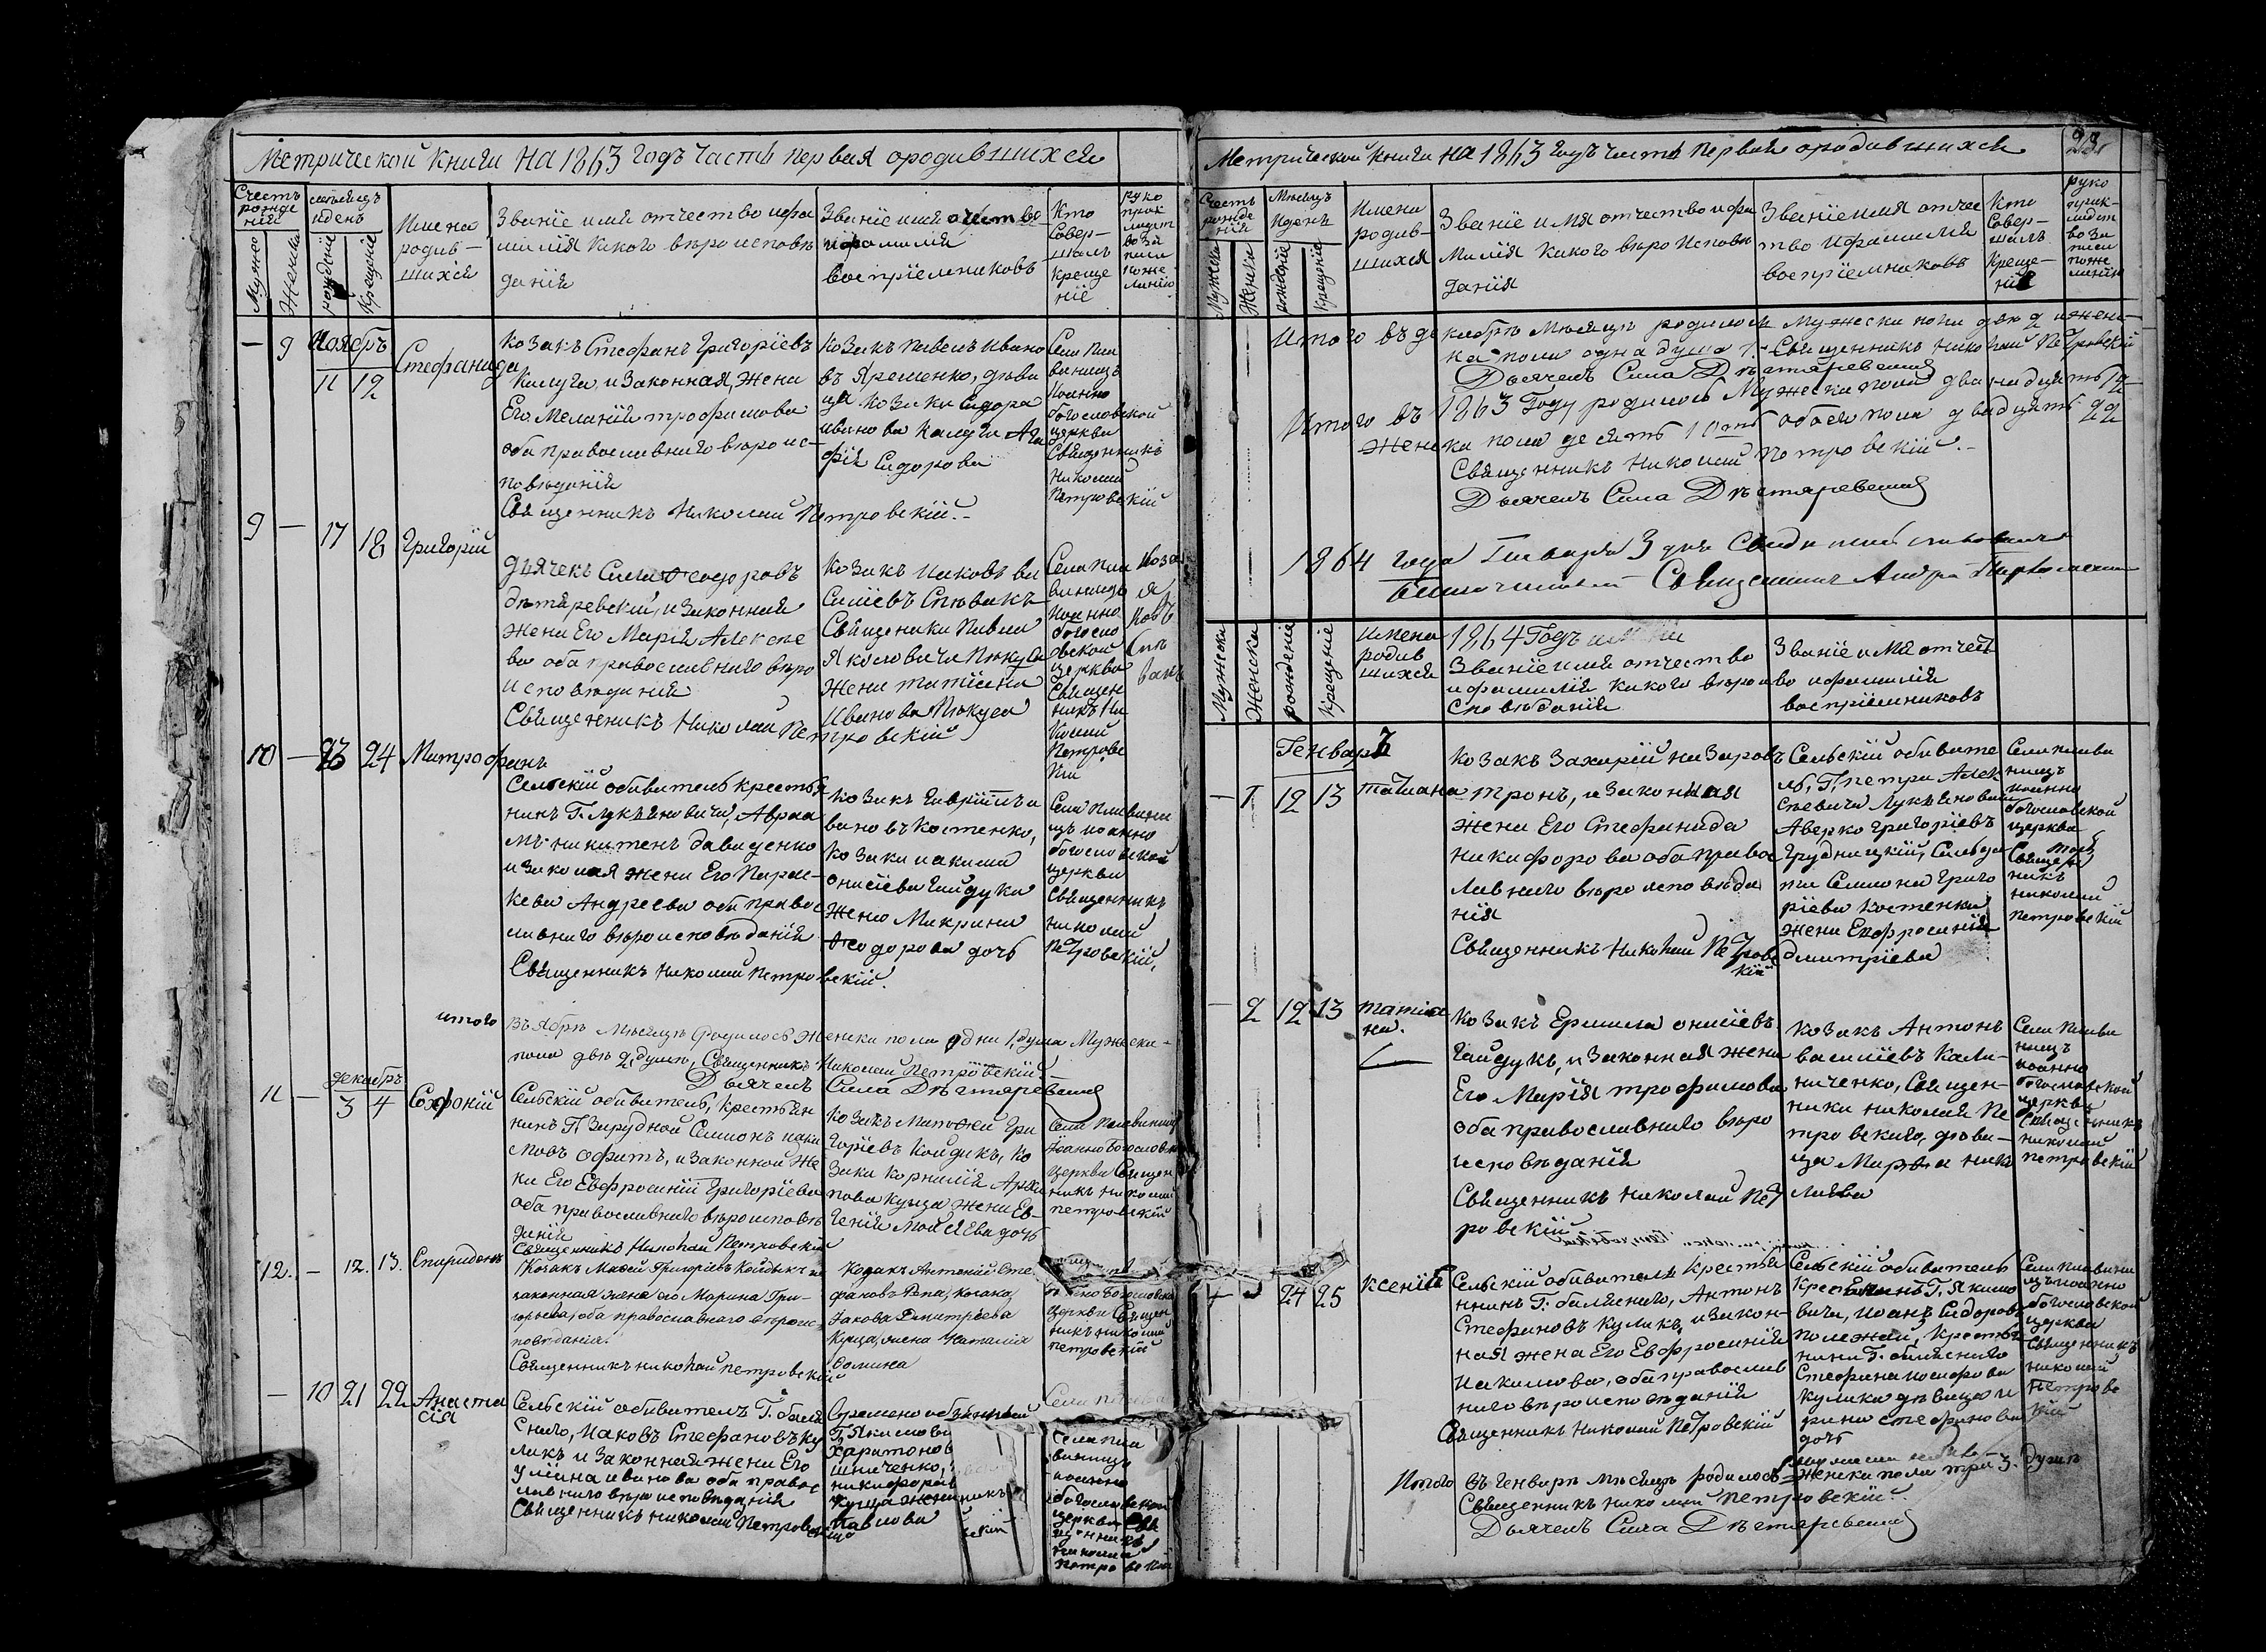 Метрической книги на 1863 годъ часть первая ородившихся
Счетъ рожде ній
мѣсяцъ иденъ
Мужеска
Женска
рожденіе
Крещеніе
Имена
родив-
шихся
Званіе имя отчество ифа
милія какого вѣроисповѣ
данія
Званіе имя отчетво
ифамилія
воспріемниковъ
Кто
Совер-
шалъ
креще
ніе
- 9
Ноябрь
11 12
Стефанида
Козакъ Стефанъ Григоріевъ
Калуга изаконная, жена
Его Меланія трофимова
оба православнаго вѣроис-
повѣданія
Священникъ Николай Петровскій.-
Козакъ Павелъ Ивано
въ Яременко, дѣви
ца козака Сидора
иванова Калуги Ага
фія Сидорова
Села Пла
виницъ
Иоанно
богословской
церкви
Священникъ
Николай
Петровскій
9 - 17 18 Григорій
дьячекъ Сила Феодоровъ
дѣгтяревскій, изаконная
жена Его Марія Алексѣе
ва оба православнаго вѣро
исповѣданія
Священникъ Николай Петровскій
Козакъ Иаковъ ва
силіевъ Спѣвакъ
Священика Павла
Яковловича Пѣкуса
жена татіана
Иванова Пѣкуса
Села Пла
виницъ
Иоанно
богосло
вской
церкви
Священ
никъ Ни
колай
Петровс
кій
Коза
Я
ковъ
Спѣ
вакъ
10 - 23 24 Митрофанъ
Сельскій обиватель крестья
нинъ Г. Лукьяновича, Авраа
мъ никитенъ давиденко
изаконая жена Его Парас-
кева Андреева оба правос
лавнаго вѣроисповѣданія
Священникъ Николай Петровскій.
Козакъ Гавріилъ и
вановъ Костенко,
козака иакима
онисіева Гайдука
жено Макрина
Феодорова дочь
Села Плавини
цъ иоанно
богословской
церкви
Священникъ
николай
Петровскій,
итого въ ябрѣ Мѣсяцѣ родилось Женска пола одна 1, душа Мужеска-
пола двѣ 2, души, Священникъ Николай Петровскій.-
Дьячекъ Сила Дѣгтяревскій
декабрь
11 - 3 4 Софроній
Сельскій обиватель, крестьян
нинъ Г. Зарудной Семионъ иаки
мовъ изаконной же
на Его Евфросинія Григоріева
оба православнаго вѣроисповѣ
данія
Священникъ Николай Петровскій
Козакъ Матфей Гри
горіевъ Койдикъ, ко
зака Корнилія Архи
пова Куцца жена Ев-
генія Мойсеева дочь
Села Плавиницъ
Іоанно Богословской
церкви Священ
никъ николай
петровскій
12. - 12. 13. Спиридонъ
Козакъ Матфей Григоріевъ Койдыкъ и
законная жена его Марина Гри-
горьева, оба православнаго вѣроис-
повѣданія.
Священникъ николай петровскій
Козакъ Антоній Сте
фановъ Репа, козака
Іакова Димитріева
Куцца, жена Наталія
Фомина
церкви Священ
никъ николай
петровскій
- 10 21 22 Анаста
сія
Сельскій обиватель Г. баля
снаго, Иаковъ Стефановъ Ку
ликъ и Законная жена Его
Уліяна иванова оба правос
лавнаго вѣроисповѣданія
Священникъ николай Петровскій
Г. Якимови
Харитонов
никифоров
Куцца жена
Павлова
Села Пла
виницъ
иоанно
богословской
церкви Свя
щенникъ
николай
петровскій
Метрической книги на 1863 годъ часть первая ородившихся
Счетъ рожде ній
Мѣсяцъ
Иденъ
Мужеска
Женска
рожденіе
Крещеніе
Имена
родив-
шихся
Званіе имя отчество ифа
милія какого вѣроисповѣ
данія
Званіе имя отчес
тво ифамилія
воспріемниковъ
Кто
Совер-
шалъ
Креще-
ніе
Итого въ декабрѣ Мѣсяцѣ родилось Мужеска пола двѣ 2 иженс-
ка пола одна душа 1.- Священникъ Николай Петровскій
Дьячекъ Сила Дѣгтяревскій
Итого въ 1863 Году родилось Мужеска пола дванадцять 12
женска пола десять 10 обоего пола двадцять 22
Священникъ Николай Петровскій.-
Дьячекъ Сила Дѣгтяревскій
1864 года Генваря 3 дня
Священникъ Андрей
Мужеска
Женска
рожденіе
Крещеніе
Имена
родив
шихся
1864 Годъ
Званіе имя отчество
ифамилія какого вѣрои
сповѣданія
Званіе и Мя отчест
во ифамилія
воспріемниковъ
Генварь
- 1 12 13 таиана
Козакъ Захарій назаровъ
тронъ, изаконная
жена Его Стефанида
никифорова оба правос
лавнаго вѣроисповѣда
нія
Священникъ Николай Петровс
кій
Сельскій обивате
ль, Г. петра Алек
сѣевича Лукьяновича
Аверко григоріевъ
Грудницкій, Солда
та Семиона Григо
ріева Костенка
жена Евфросинія
дмитріева
Села плави
ницъ
иоанно
богословской
церкви
Священ
никъ
николай
петровскій
- 2 12 13 татіа
на.
Козакъ Ермила онисіевъ
Гайдукъ, изаконная жена
Его Марія трофимова
оба православнаго вѣро
исповѣданія
Священникъ николай Пет
ровскій
Козакъ Антонъ
василіевъ Кали-
ниченко, Священ-
ника николая Пе
тровскаго, дѣви-
ца Марфа нико
лаева
Села плави
ницъ
иоанно
богословской
церкви
Священникъ
николай
петровскій
24 25 Ксенія
Сельскій обиватель крестья
нинъ Г. баляснаго, Антонъ
Стефановъ Куликъ, изакон-
ная жена Его Евфросинія
Иакимова, оба православ
наго вѣроисповѣданія
Священникъ Николай Петровскій
Сельскій обиватель
крестьянинъ Г. Якимо
вича, Иоанъ Сидоровъ
полежай, крестья
нина Г. баляснаго
Стефана иосифова
Кулика дѣвица и
рина стефанова
дочь
Села плавини
цъ иоанно
богословской
церкви
Священникъ
николай
Петровс
кій
Итого въ генварѣ мѣсяцѣ родилось женска пола три 3. душѣ
Священникъ николай петровскій.
Дьячекъ Сила Дѣгтяревскій